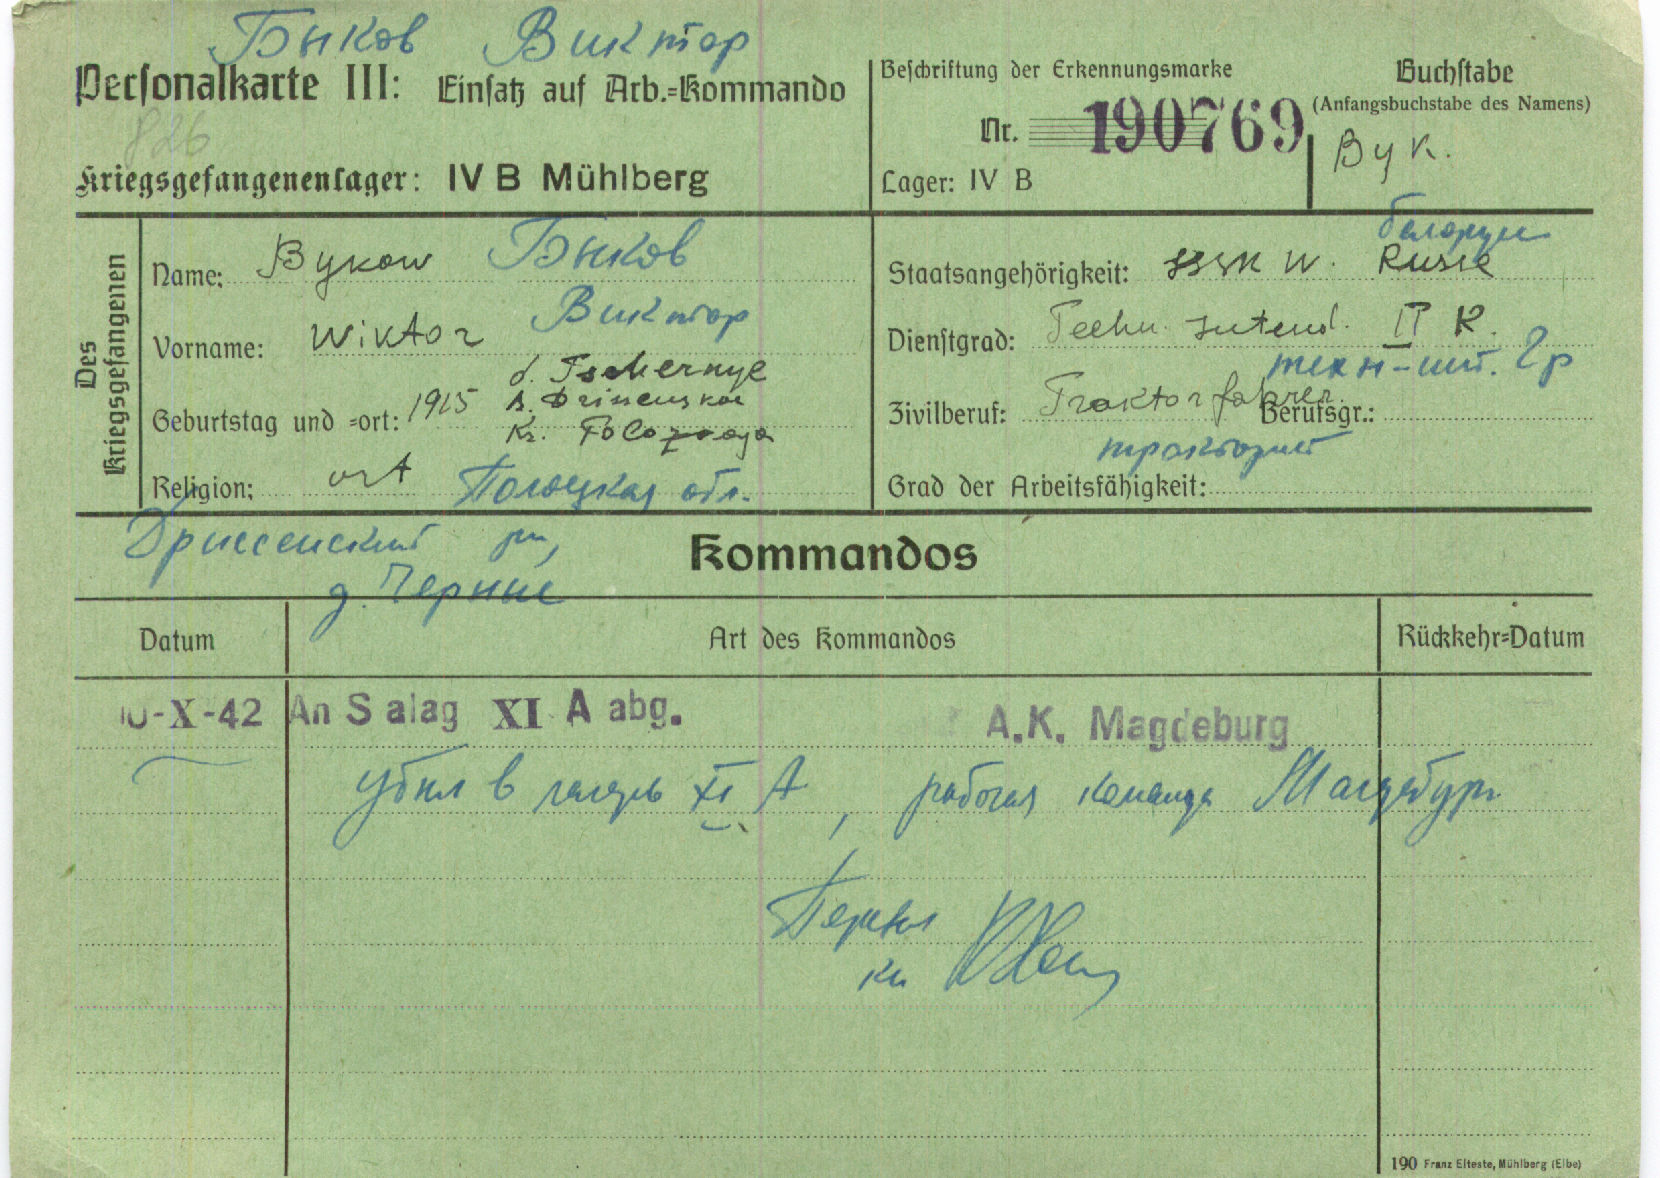 Быков Виктор
Personalkarte III: Einsatz auf Arb.=Kommando
826
Kriegsgefangenenlager: IV B Mühlberg
Beschriftung der Erkennungsmarke
Nr. 190769
Lager: IV B
Buchstabe
(Anfangsbuchstabe des Namens)
Byk.
Des Kriegsgefangenen
Name: Bykow Быков
Vorname: Wiktor Виктор
Geburtstag und =ort: 1915 d. Tschernye
Kr.
Religion: ort Полоцкая обл.
Дриссенский рн,
д. Черные
белорус
Staatsangehörigkeit: W. Russe
Dienstgrad: Techn. Intend. II R.
техн-инт. 2р
Zivilberuf: Traktorfahrer Berufsgr.:
тракторист
Grad der Arbeitsfähigkeit:
Kommandos
Datum Art des Kommandos Rückkehr=Datum
-X-42 An S alag XI A abg. A.K. Magdeburg
убыл в лагерь XI A, рабочая команда Магдебург
190 Franz Elteste, Mühlberg (Elbe)